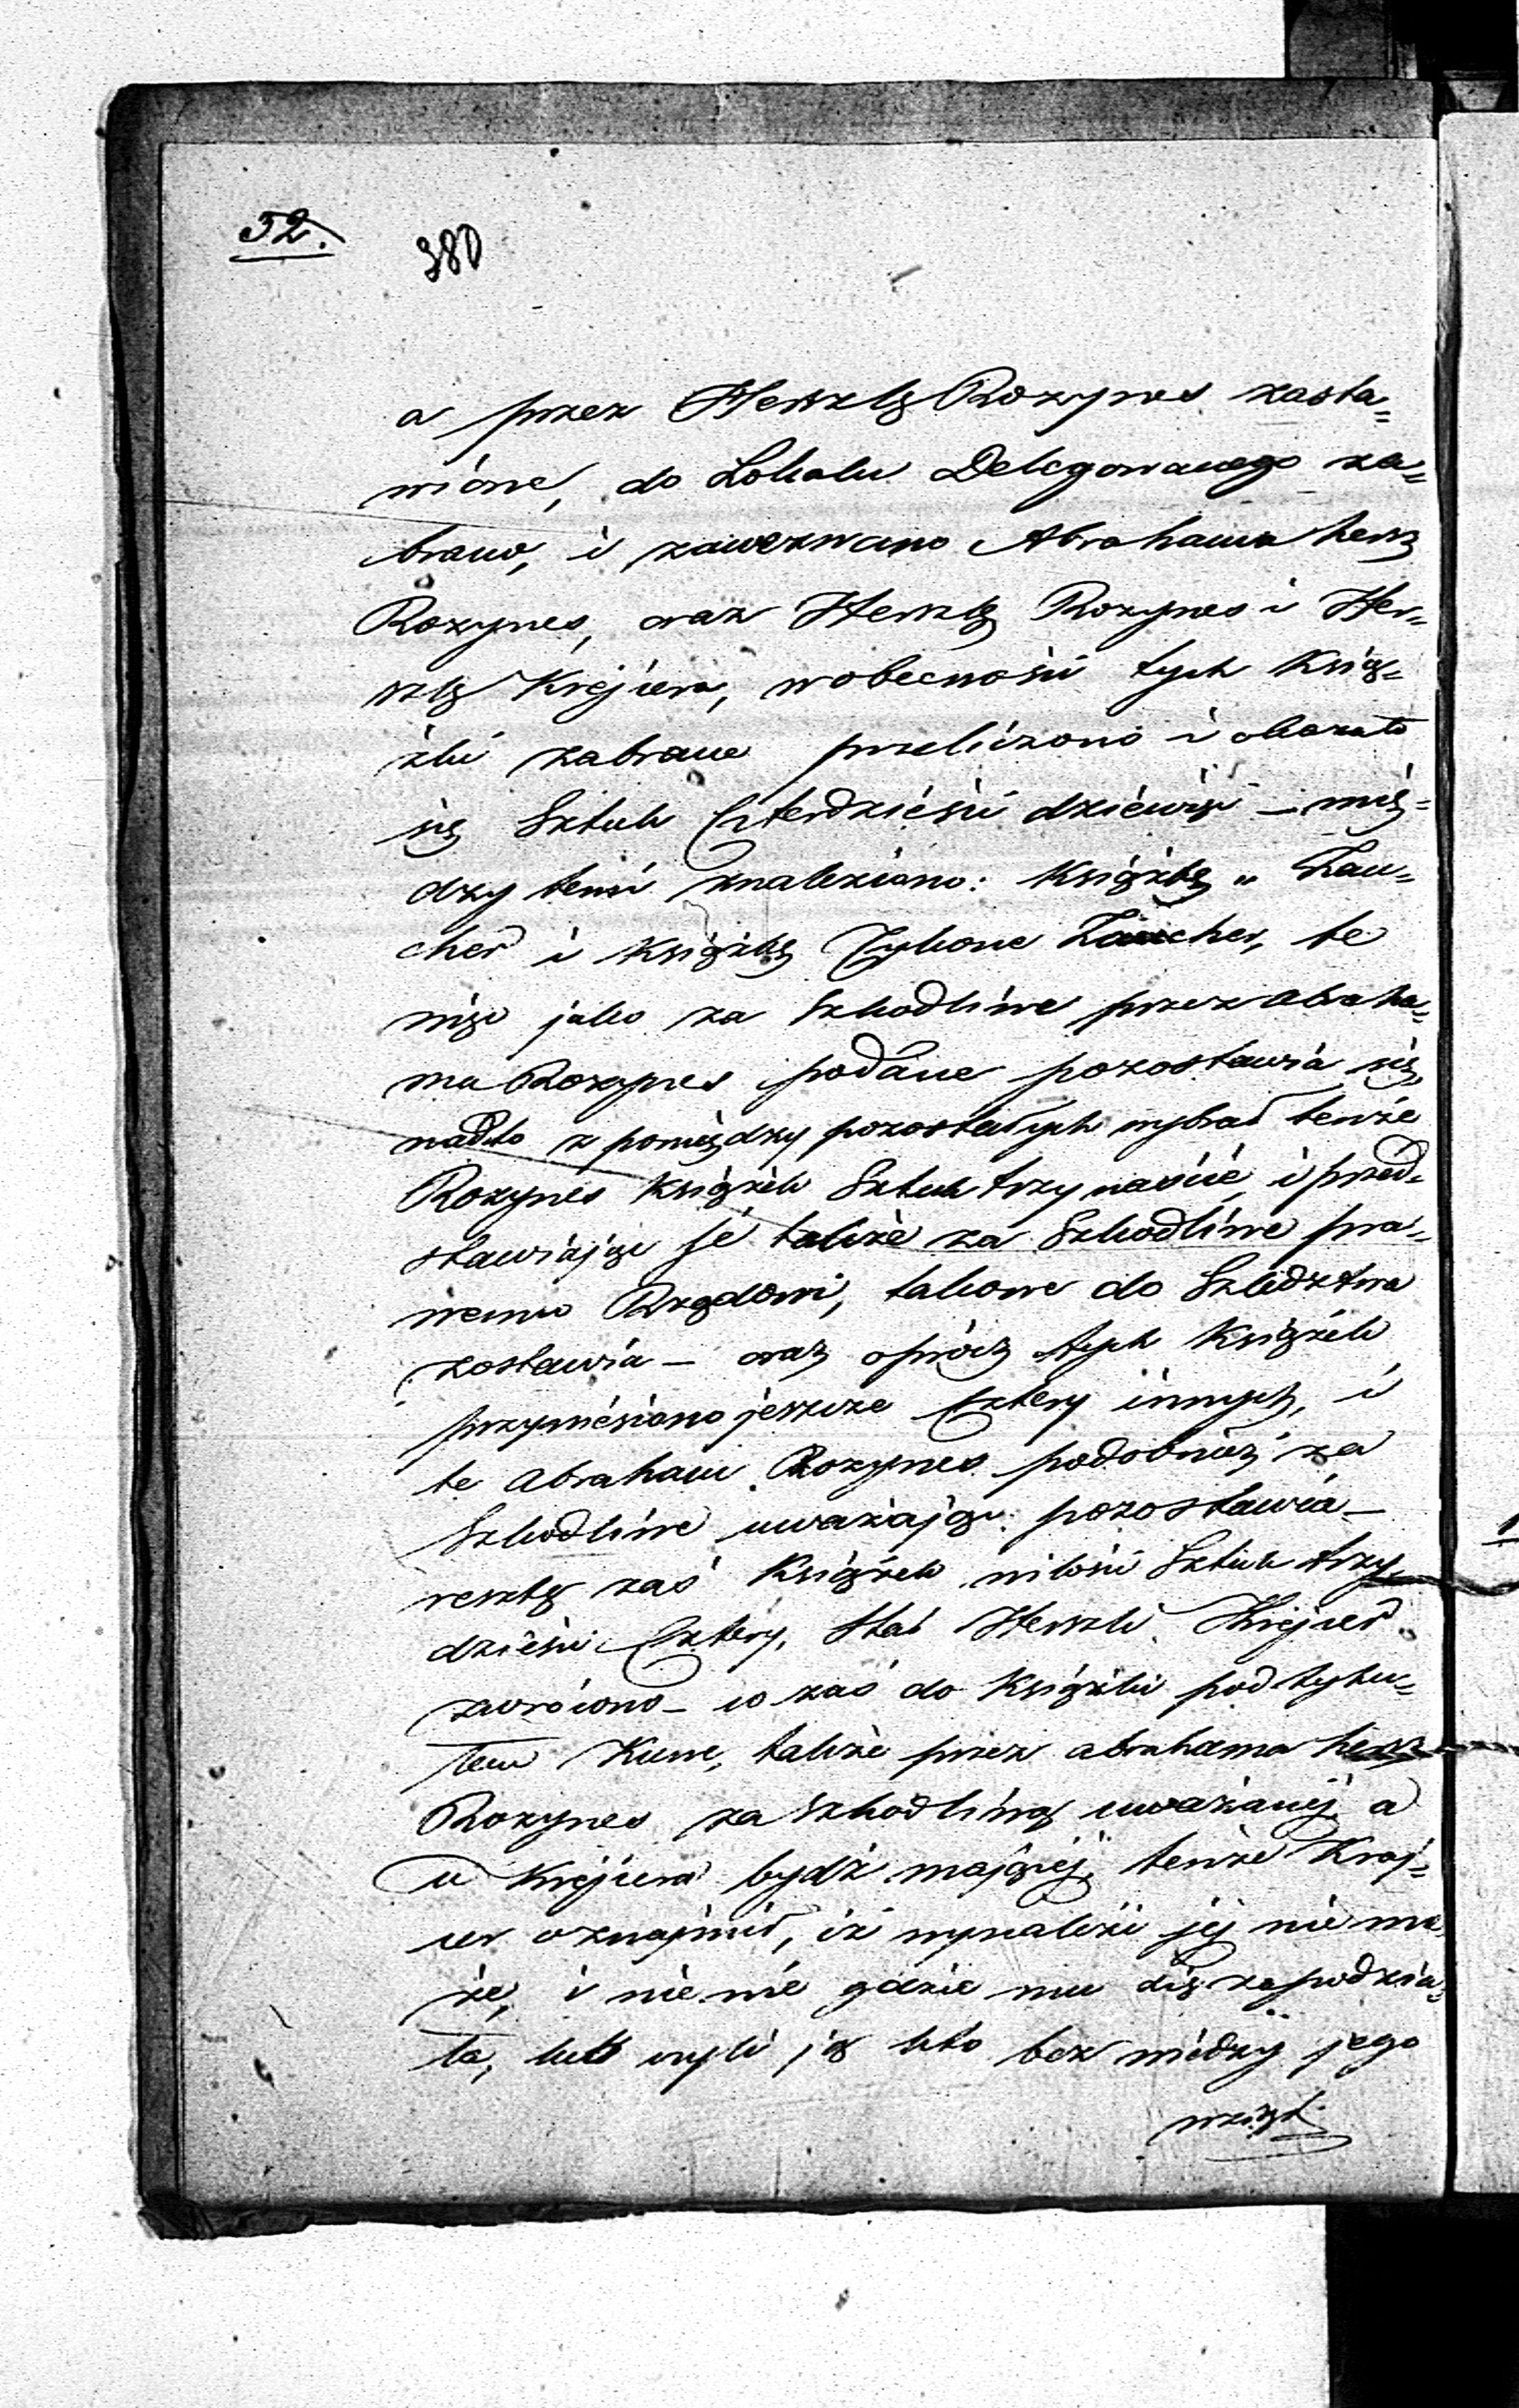 52.
380
a przez Herszlę Rozynes zosta=
wione, do Lokalu Delegowanego za=
brano, i zawezwano Abrahama hersz
Rozynes, oraz Herszlę Rozynes i Her=
szlę Krejcera, w obecności tych Ksią=
żki zabrane przeliczono i okazało
się Sztuk Czterdzieści dziewięć – mię=
dzy temi znaleziono: Książkę „ Zau=
cher i Książkę Tykone Zaucher, te
więc jako za Szkodliwe przez Abraha=
ma Rozynes podane pozostawia się,
nadto z pomiędzy pozostałych wybrał tenże
Rozynes Książek Sztuk trzynaście, i przed=
stawiając je także za Szkodliwe pra=
wemu Rządowi, takowe do Szledztwa
zostawia – oraz oprócz tych Książek
przyniesiono jeszcze Cztery innych, i
te Abraham Rozynes podobnież za
Szkodliwe uważając pozostawia –
resztę zaś Książek w ilości Sztuk trzy=
dzieści Cztery, Herszli Krejcer
zwrócono – co zaś do Książki pod tytu=
łem także przez abrahama hersz
Rozynes za szkodliwą uważanej, a
u Krejcera bydź mającej, tenże Krej=
cer oznajmił, iż wynaleźć jej nie mo
że, i nie wie gdzie mu się zapodzia=
ła, lub czyli ją kto bez wiedzy jego
wziął